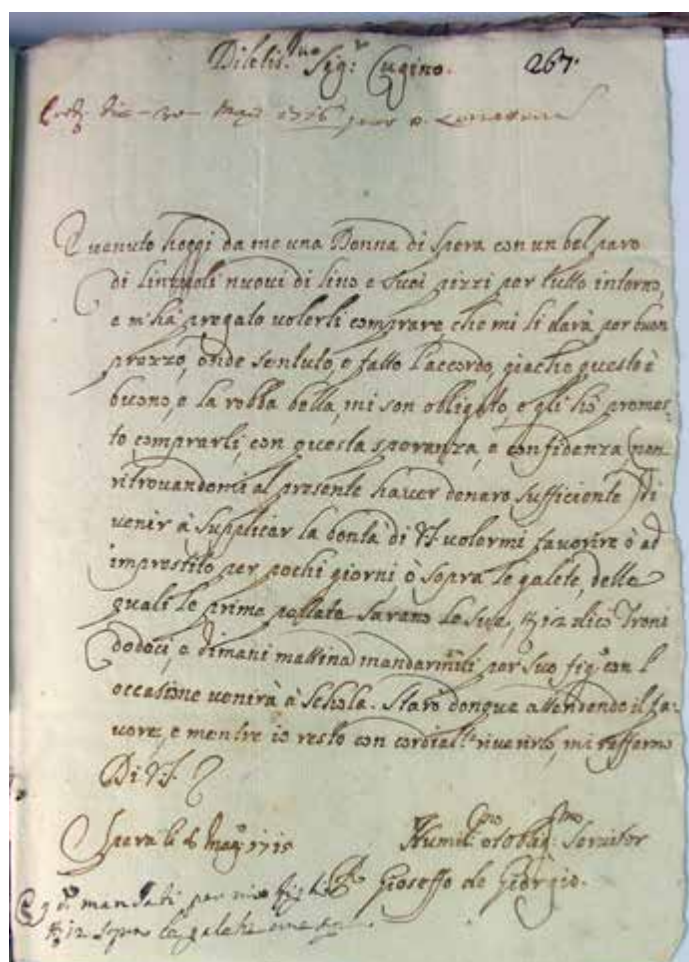 Diletis.mo Sig.r Cugino. 267.
È venuto hoggi da me una Donna di Spera con un bel paro
di linzuoli nuovi di lino e suoi pizzi per tutto intorno,
e m'hà pregato volerli comprare che mi li darà per buon
prezzo, onde sentuto, e fatto l'accordo, giache questo è
buono, e la robba bella, mi son obligato, e gli hò promes-
to comprarli, con questa speranza, e confidenza (non
ritrovandomi al presente haver denaro sufficiente) di
venir à supplicar la bontà di VS. volermi favorire ò ad
imprestito per pochi giorni, ò sopra le galete, delle
quali le prime pellate sarano le sue, 12 dico Troni
dodeci, e dimani mattina mandarmili per suo fig.o con l
occasione venirà à schola. Starò donque attendendo il fa-
vore, e mentre io resto con cordial.tà riverirlo, mi raffermo
Di VS.
Spera li 6 Mag.o 1715
Humil.mo Oblig.mo Servitor
Gioseffo de Giorgio.
mandati per mio figlio
12 sopra le galete